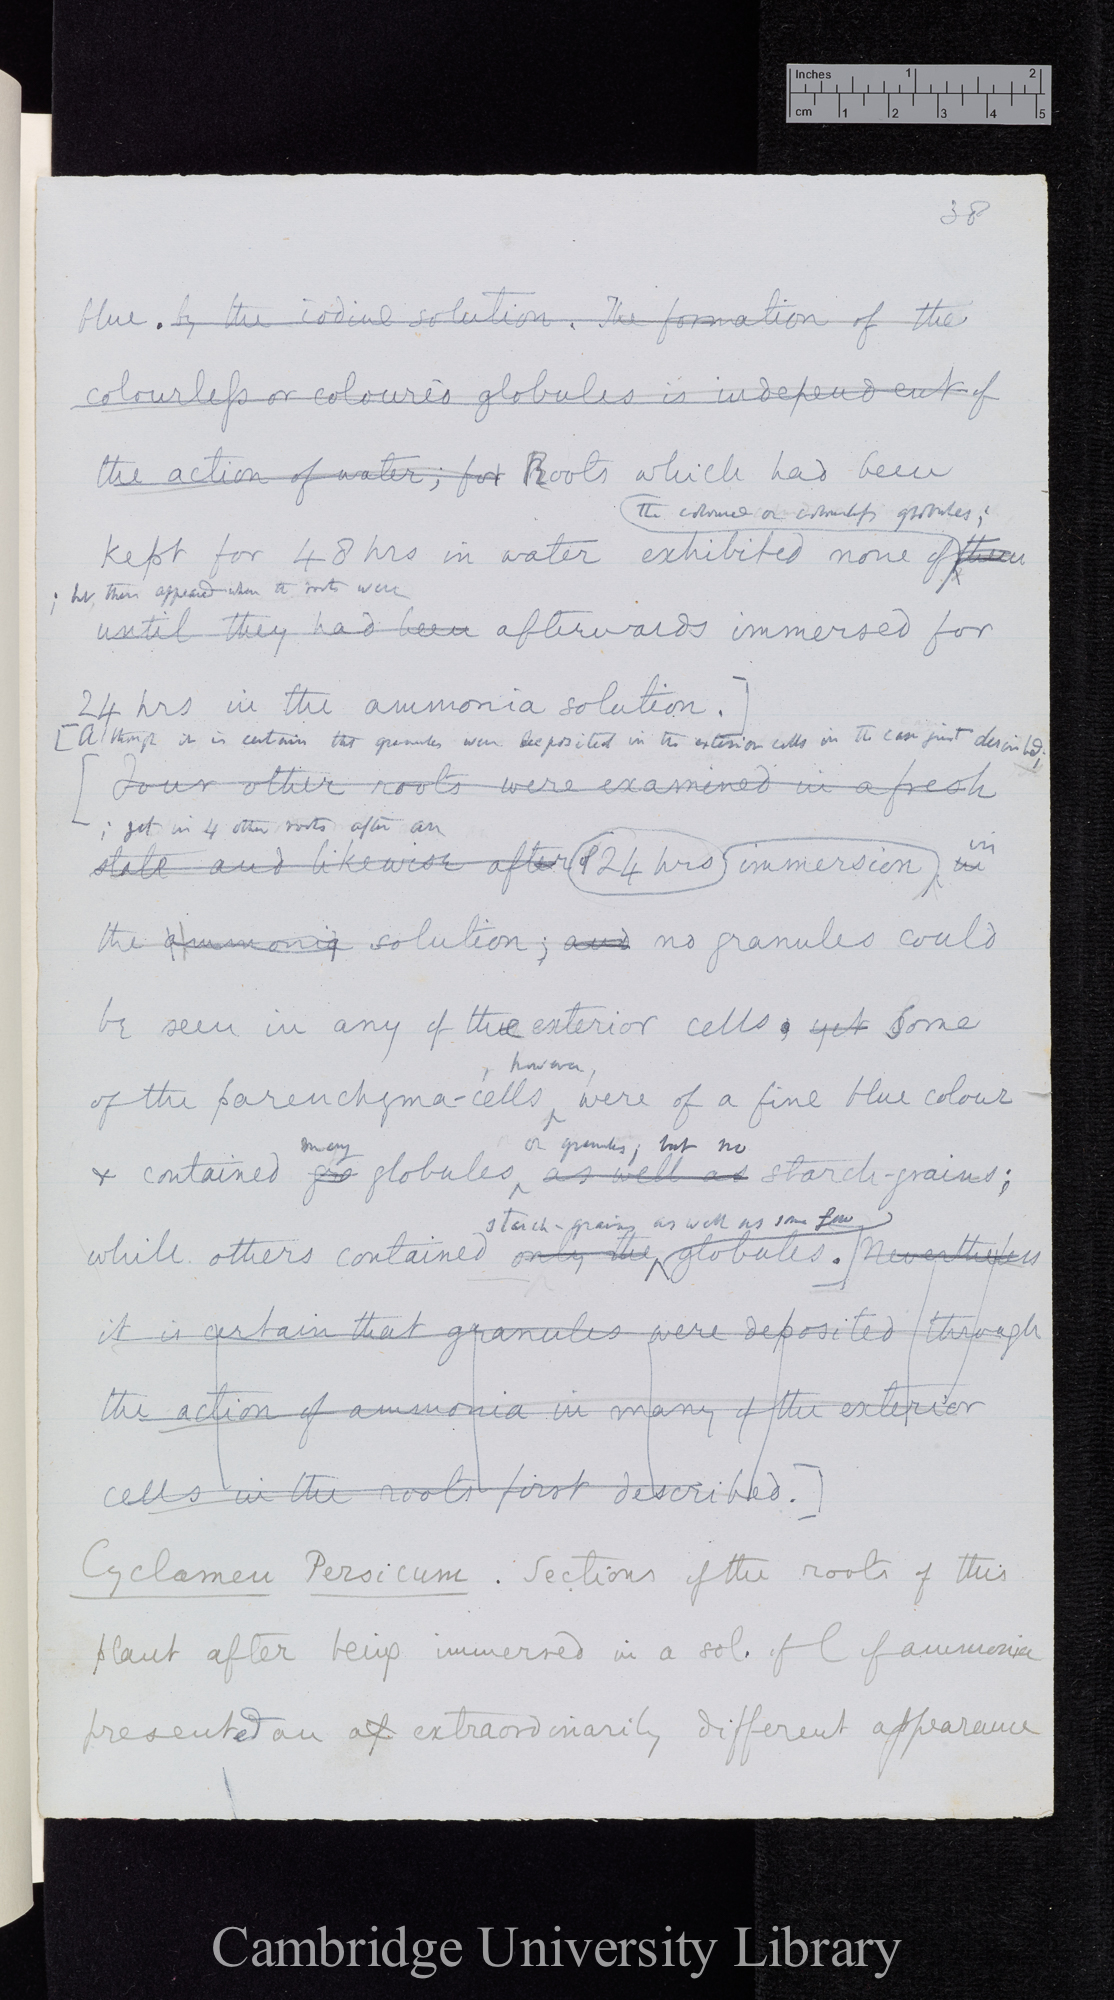 Inches 1 2
cm 1 2 3 4 5
38
blue. by the iodine solution. The formation of the
colourless or coloured globules is independent of
the action of water; for Roots which had been
the coloured or colourless globules;
kept for 48 hrs in water exhibited none of them
; but these appeared when the roots were
until they had been afterwards immersed for
24 hrs in the ammonia solution.]
[Although it is certain that granules were deposited in the exterior cells in the case just described;
[Four other roots were examined in a fresh
; yet in 4 other roots after an
state and likewise after 24 hrs immersion in in
the ammonia solution; and no granules could
be seen in any of the exterior cells; yet Some
, however,
of the parenchyma-cells were of a fine blue colour
many or granules; but no
& contained globules, as well as starch-grains;
starch-grains as well as some few
while others contained only the globules.] Nevertheless
it is certain that granules were deposited through
the action of ammonia in many of the exterior
cells in the roots first described.]
Cyclamen Persicum. Sections of the roots of this
plant after being immersed in a sol. of C of ammonia
presented an extraordinarily different appearance
Cambridge University Library